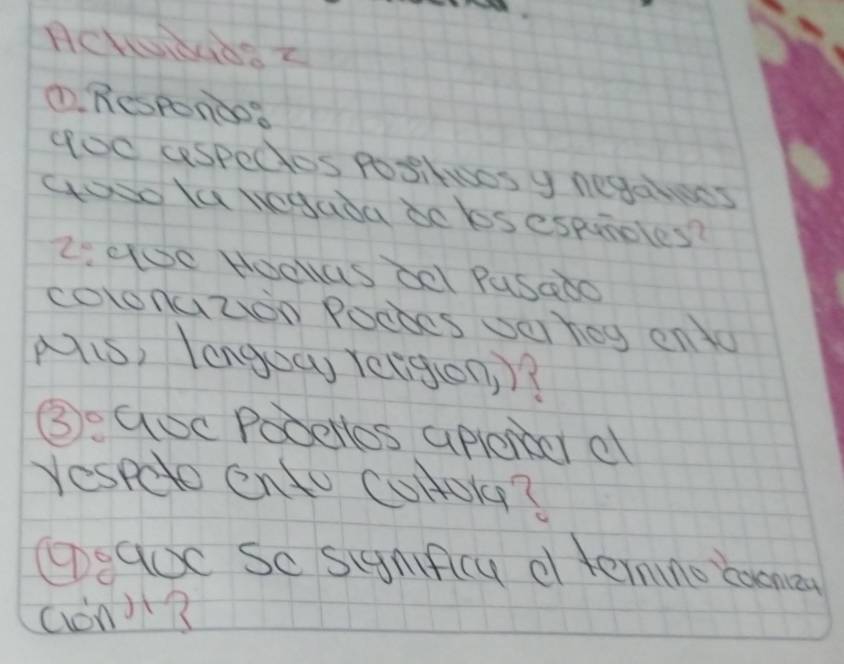 Actividad: 2
①. Respondo:
que aspectos positivos y negativos
causo la llegada de los españoles?
2: que Huellas del Pasado
colonazión Poedes ver hoy en tu
país, lengua, religion,)?
③: que Podemos aprender el
respecto en tu cultura?
④: que se significa el termino "coloniza
ción"?